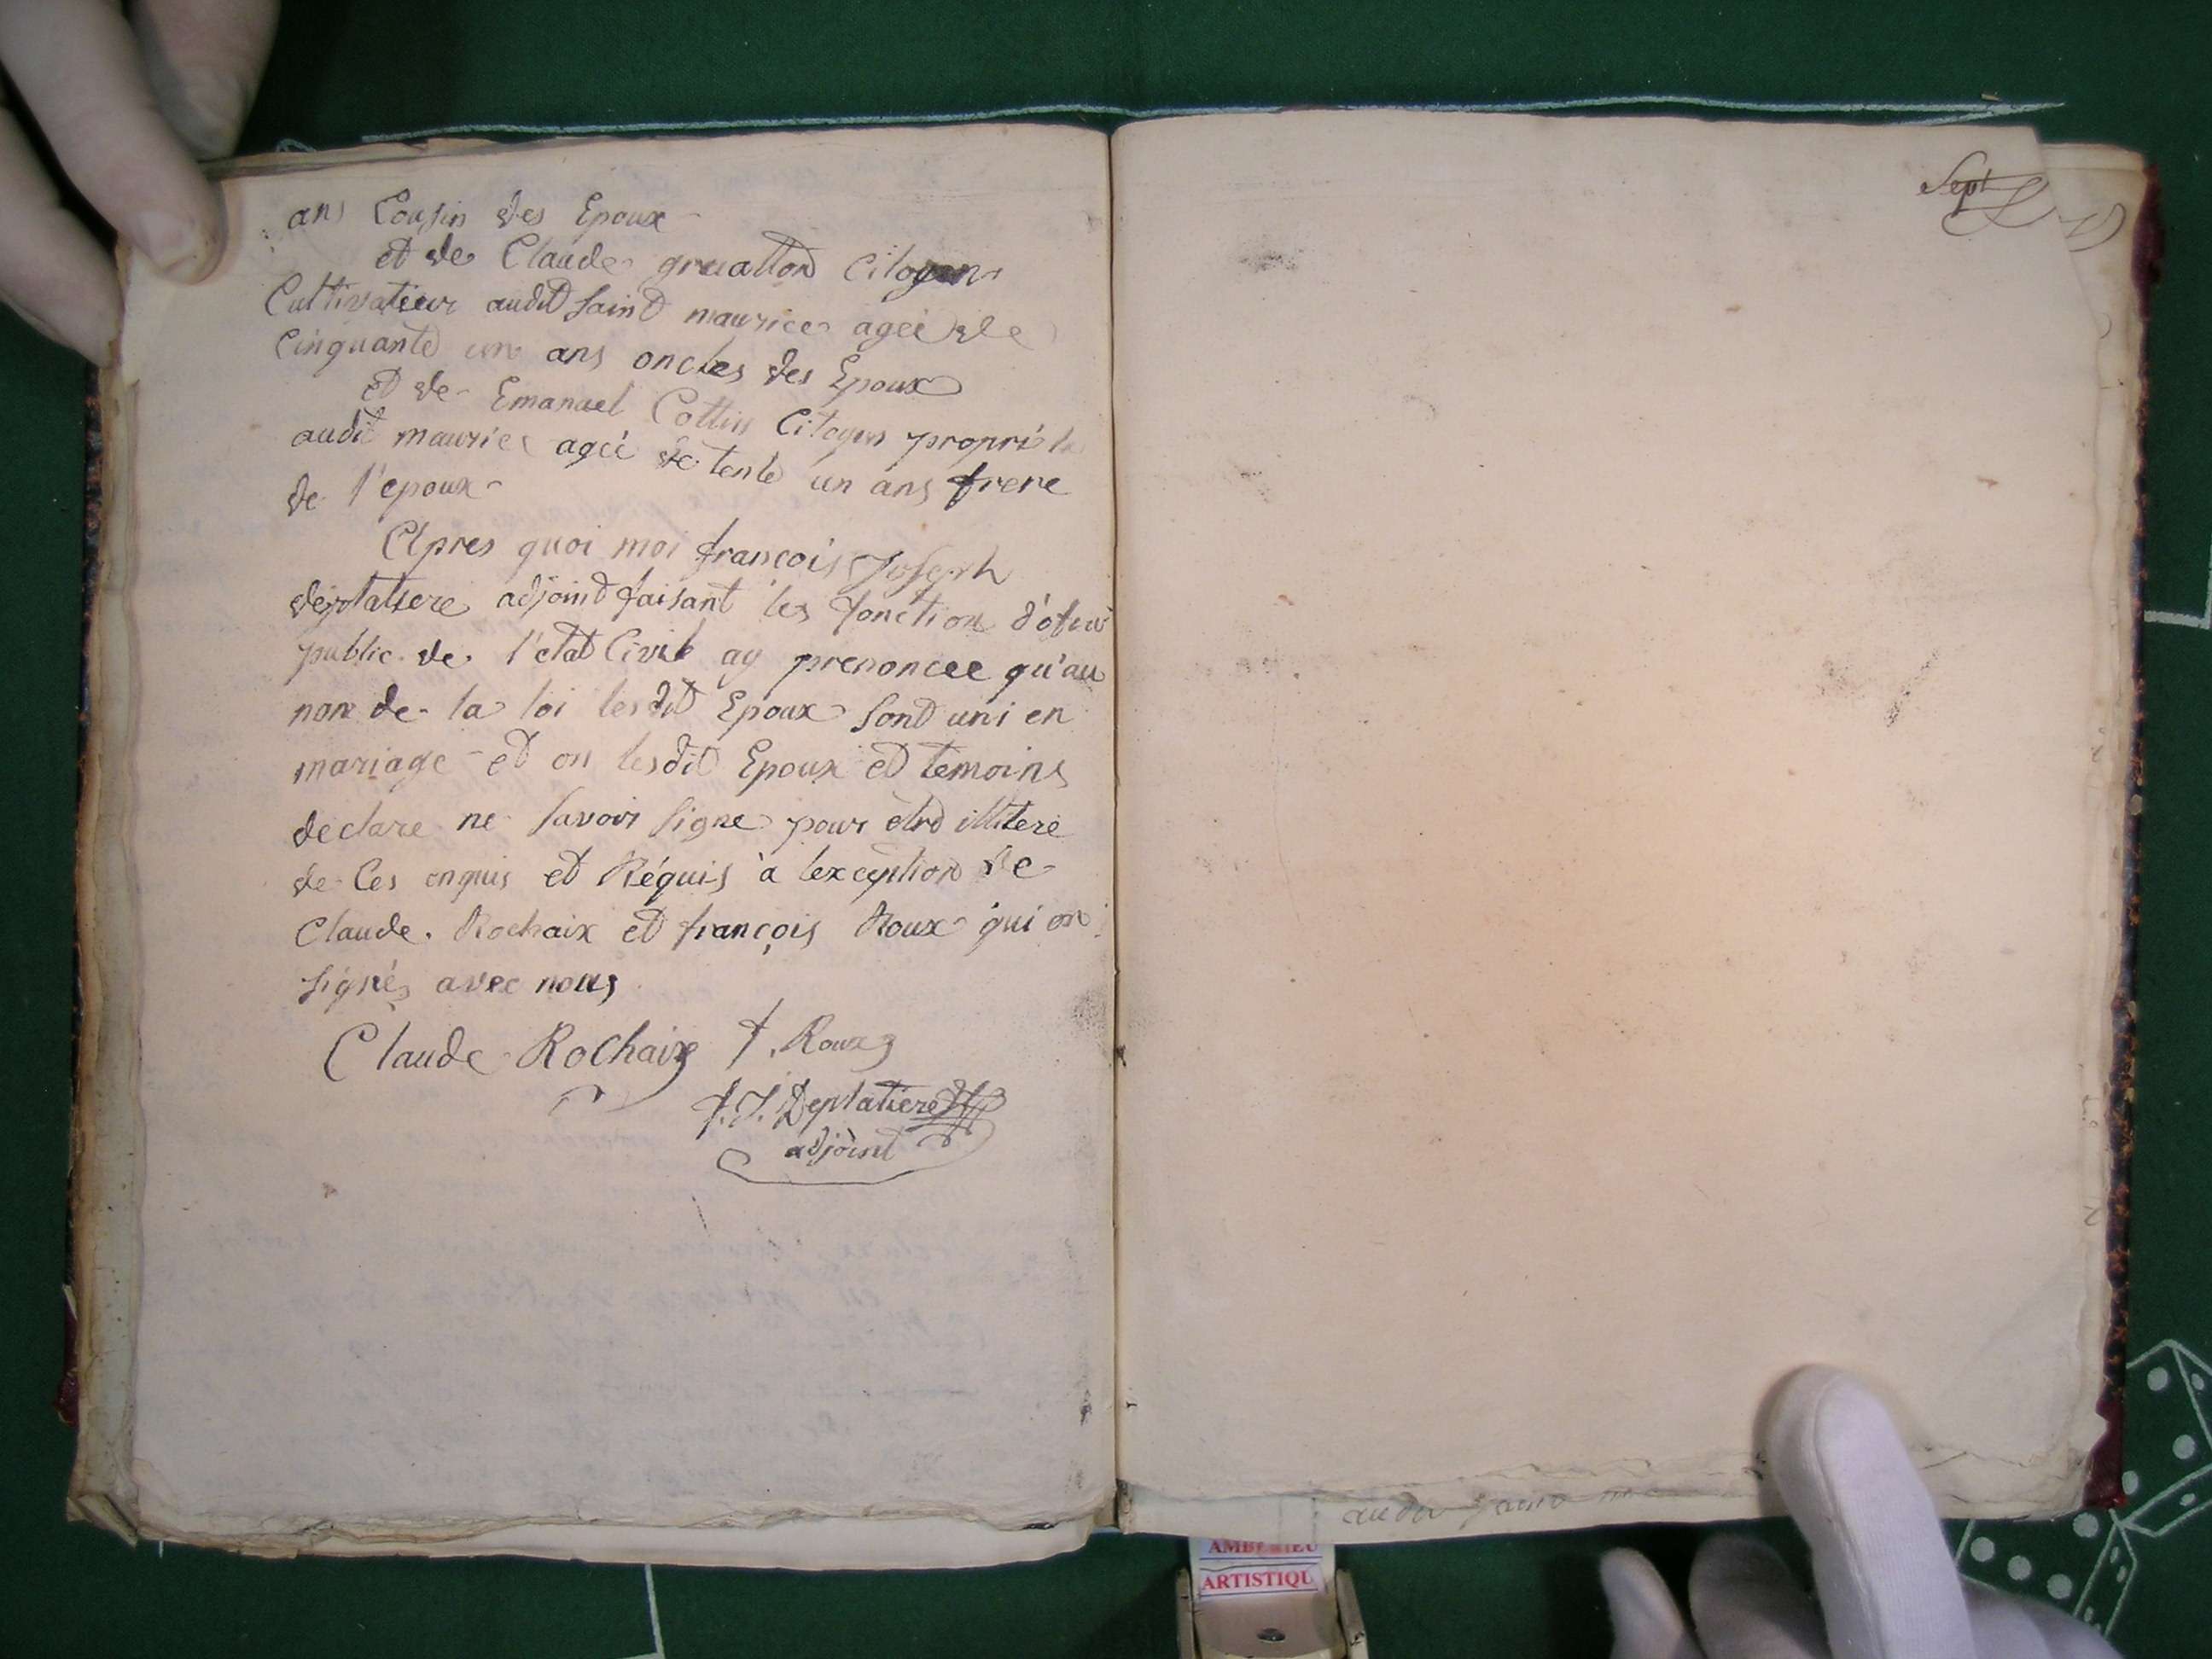 ans Cousin des Epoux
et de Claude gruallod Citoyen
Cultivatieur audit saint maurice ageé de
Cinquante un ans oncles des Epoux
et de Emanuel Cottin Citoyen proprié
audit maurice ageé de tente un ans frere
de l'epoux
Apres quoi moi françois Joseph
déplatiere adjoint faisant les fonction d'
public de l'etat Civil ay prenoncee qu'au
nom de la loi lesdit Epoux sont uni en
mariage et on lesdit Epoux et temoins
declare ne savoir signe pour etre illitere
de Ces enquis et Réquis à lexception de
Claude Rochaix et françois Roux qui on
signés avec nous
Claude Rochaix f. Roux
f. J. Deplatiere
adjoint
Sept
audit saint
AMBERIEU
ARTISTIQU